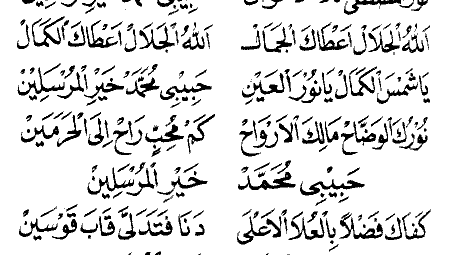 اَللهُ الْجَلَالْ اَعْطَاكَ الْجَمَالْ اَللهُ الْجَلَالْ اَعْطَاكَ الْكَمَالْ
يَا شَمْسَ الْكَمَالْ يَا نُوْرَ الْعَيْنِ حَبِيْبِى مُحَمَّدْ خَيْرِ الْمُرْسَلِيْنْ
نُوْرُكَ الْوَضَّاحْ مَالِكَ الْاَرْوَاحْ كَمْ مُحِبٍّ رَاحْ اِلَى الْحَرَمَيْنْ
حَبِيْبِى مُحَمَّدْ خَيْرِ الْمُرْسَلِيْنْ
كَفَاكَ فَضْلاً بِالْعُلَا الْاَعْلَى دَنَا فَتَدَلَّى قَابَ قَوْسَيْنْ